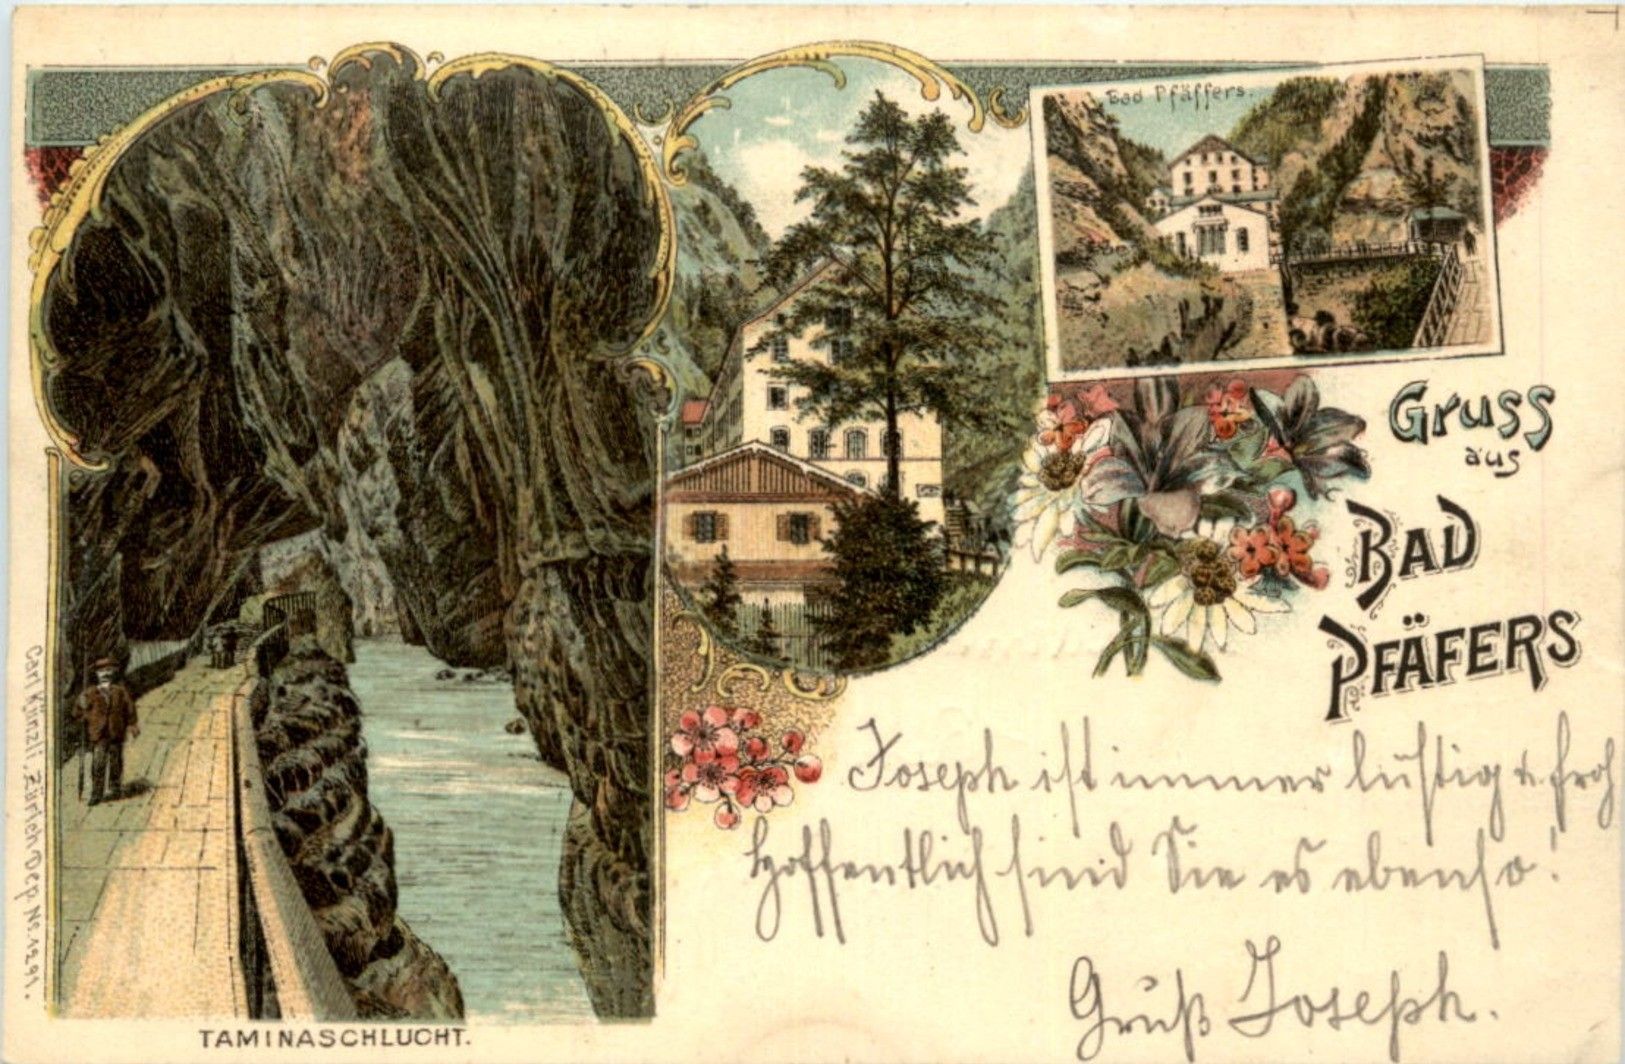 Bad Pfäffers.
Gruss
aus
BAD
PFÄFERS
Joseph ist immer lustig u. froh
Hoffentlich sind Sie es ebenso!
Gruß Joseph.
TAMINASCHLUCHT.
Carl Künzli, Zürich Dep. No. 1291.